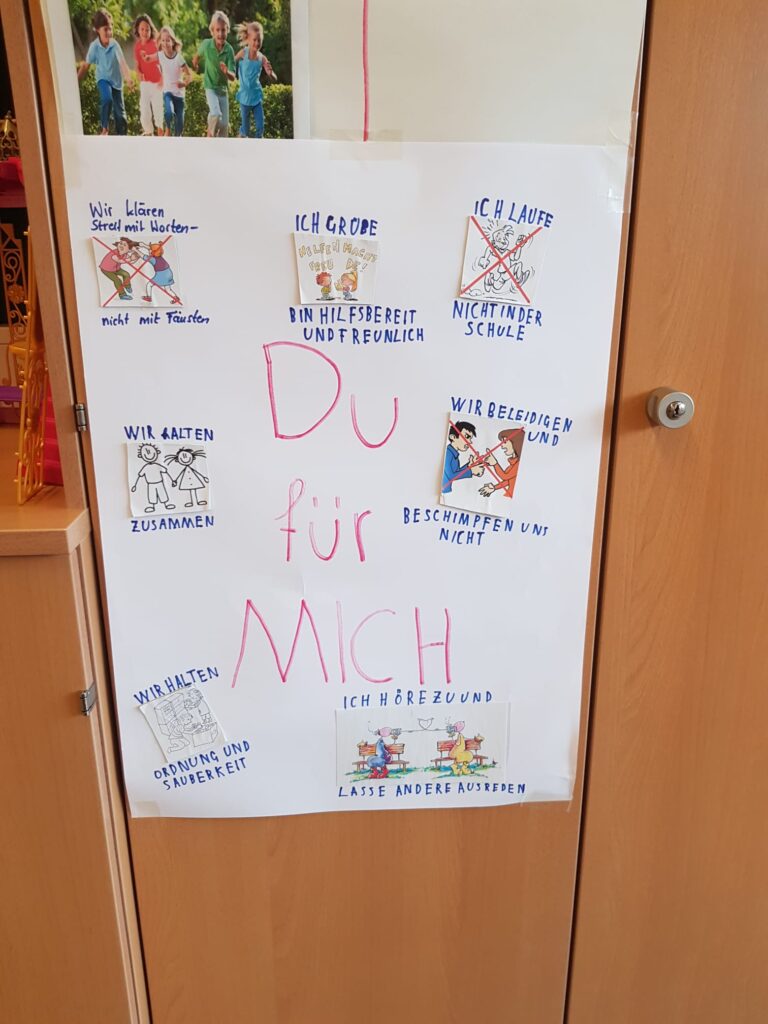 Wir klären
Streit mit Worten-
nicht mit Fäusten
ICH GRÜBE
HELFEN MACHT
FREUDE!
BIN HILFSBEREIT
UND FREUNLICH
ICH LAUFE
NICHT IN DER
SCHULE
Du
für
MICH
WIR HALTEN
ZUSAMMEN
WIR BELEIDIGEN
UND
BESCHIMPFEN UNS
NICHT
WIR HALTEN
ORDNUNG UND
SAUBERKEIT
ICH HÖRE ZU UND
LASSE ANDERE AUSREDEN